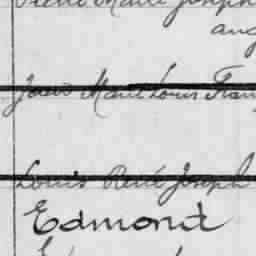 Pierre Marie Joseph
aug
Marie Louis Fran
Louis René Joseph
Edmond